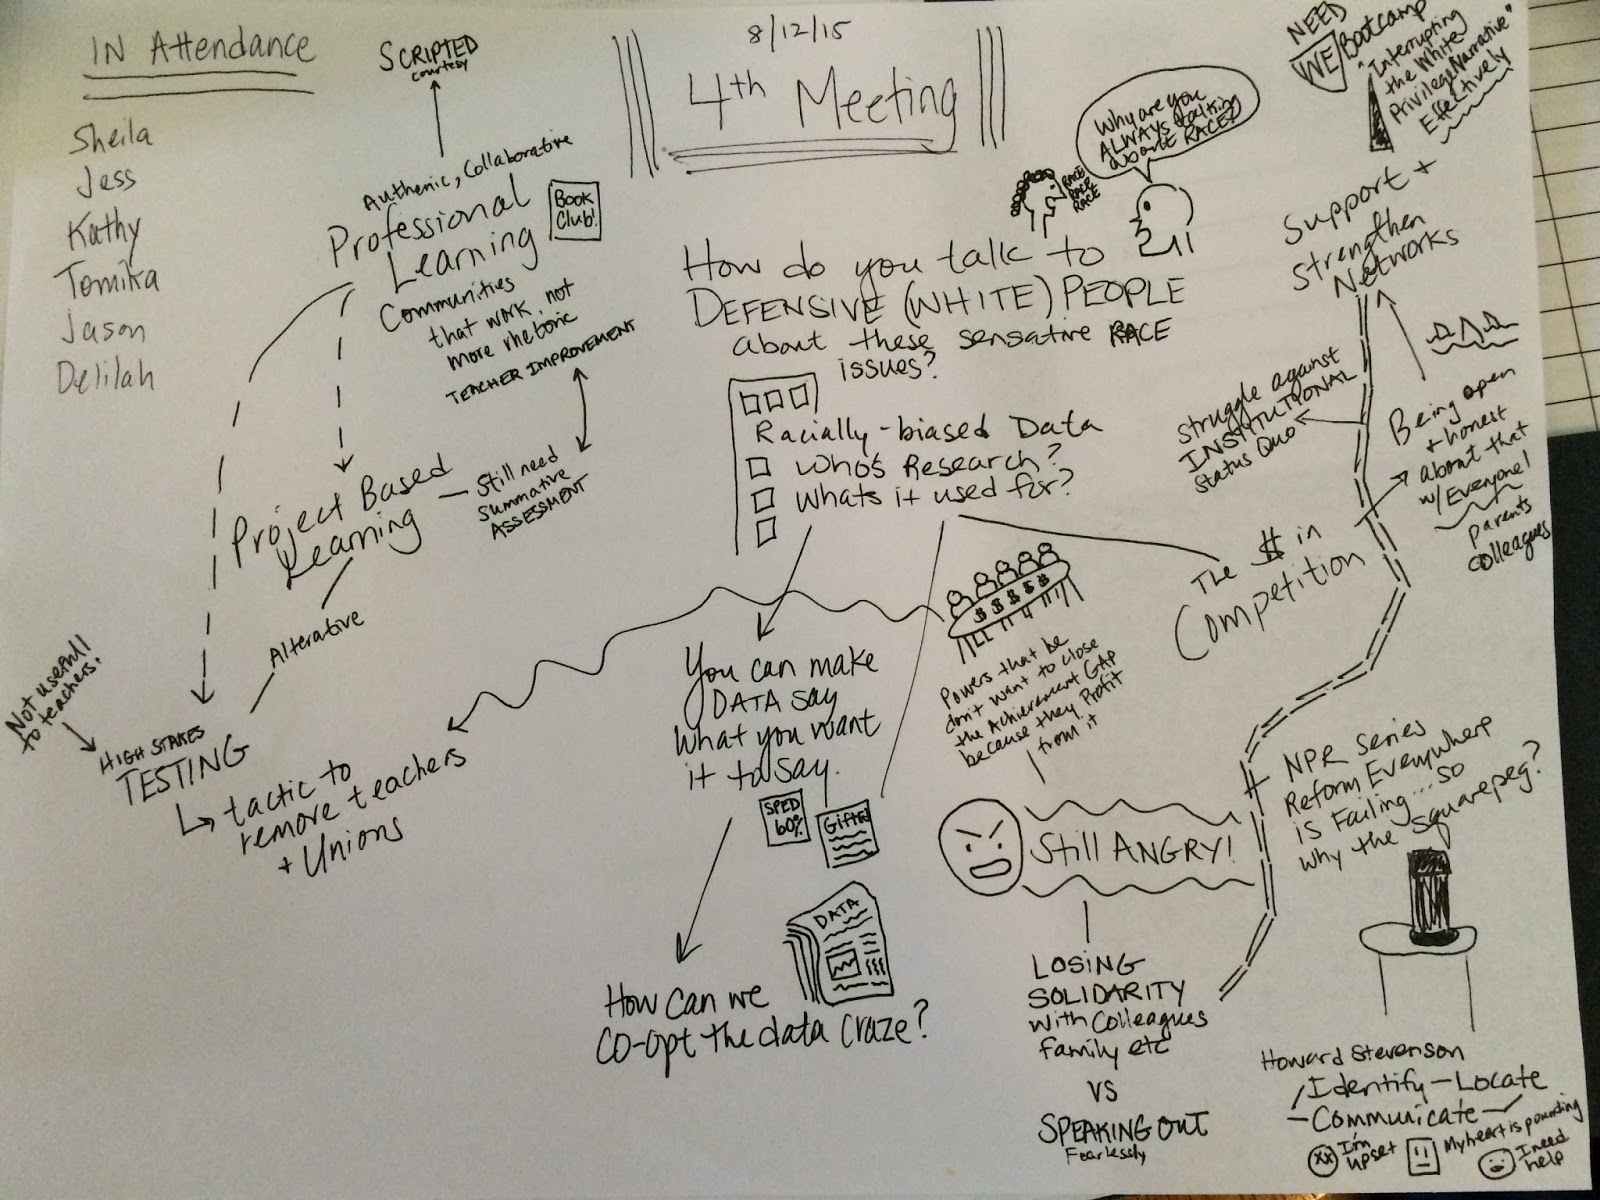 IN Attendance
Sheila
Jess
Kathy
Tomika
Jason
Delilah
SCRIPTED
courtesy
Authenic, Collaborative
Professional
Learning
Book
Club!
Communities
that work, not
more rhetoric
TEACHER IMPROVEMENT
Project Based
Learning
Still need
Summative
ASSESSMENT
Alterative
Not usefull
to teachers.
HIGH STAKES
TESTING
tactic to
remove teachers
+ Unions
8/12/15
4th Meeting
Why are you
ALWAYS talking
about RACE?
RACE
RACE
RACE
How do you talk to
DEFENSIVE (WHITE) PEOPLE
about these sensative RACE
issues?
Racially-biased Data
Who's Research?
Whats it used for?
You can make
DATA say
what you want
it to say.
SPED
60%
Gifted
DATA
How can we
co-opt the data craze?
$ $ $ $ $
Powers that be
don't want to close
the Achievement GAP
because they Profit
from it
Still ANGRY!
LOSING
SOLIDARITY
with Colleagues
family etc
VS
SPEAKING OUT
Fearlessly
The $ in
Competition
NEED
WE Bootcamp
"Interrupting
the White
Privilege Narrative"
Effectively
Support +
Strengthen
Networks
Struggle against
INSTITUTIONAL
Status Quo
Being open
+ honest
about that
w/ Everyone!
Parents
Colleagues
NPR series
Reform Everywhere
is Failing... so
why the squarepeg?
Howard Stevenson
Identify - Locate
- Communicate -
I'm
upset
My heart is pounding
I need
help